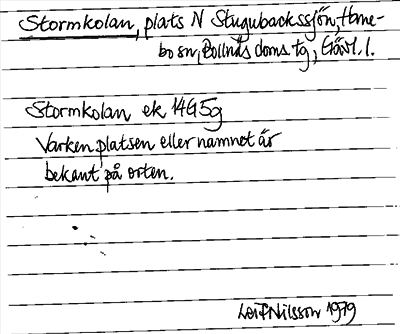 Stormkolan, plats N Stugubackssjön, Hane-
bo sn, Bollnäs doms tg, Gävl. l.
Stormkolan ek 14G5g
Varken platsen eller namnet är
bekant på orten.
Leif Nilsson 1979